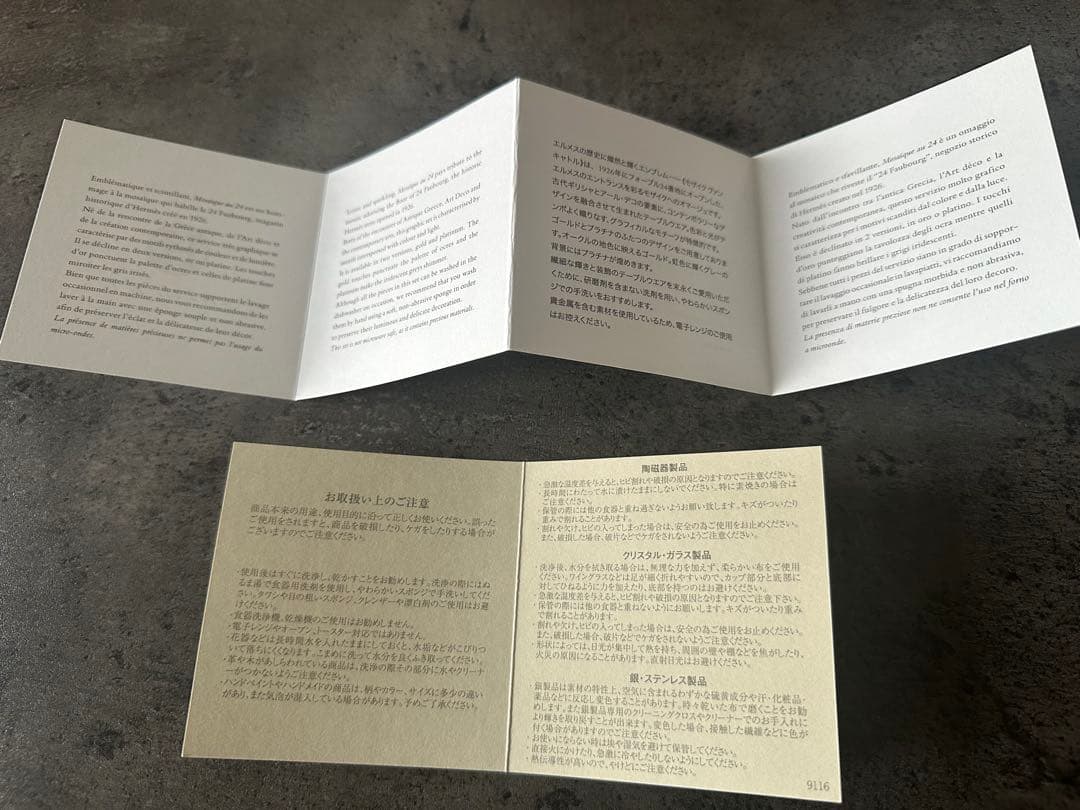 Emblématique et scintillant, Mosaïque au 24 est un hom-
mage à la mosaïque qui habille le 24 Faubourg, magasin
historique d'Hermès créé en 1926.
Né de la rencontre de la Grèce antique, de l'Art déco et
de la création contemporaine, ce service très graphique se
caractérise par des motifs rythmés de couleur et de lumière.
Il se décline en deux versions, or ou platine. Les touches
d'or ponctuent la palette d'ocres et celles de platine font
miroiter les gris irisés.
Bien que toutes les pièces du service supportent le lavage
occasionnel en machine, nous vous recommandons de les
laver à la main avec une éponge souple et non abrasive,
afin de préserver l'éclat et la délicatesse de leur décor.
La présence de matières précieuses ne permet pas l'usage du
micro-ondes.
Iconic and sparkling, Mosaïque au 24 pays tribute to the
mosaic adorning the floor of 24 Faubourg, the historic
Hermès store opened in 1926.
Born of the encounter of Antique Greece, Art Deco and
contemporary arts, this graphic set is characterised by
motifs interspersed with colour and light.
It is available in two versions, gold and platinum. The
gold touches punctuate the palette of ocres and the
platinum make the iridescent greys shimmer.
Although all the pieces in this set can be washed in the
dishwasher on occasion, we recommend that you wash
them by hand using a soft, non-abrasive sponge in order
to preserve their luminous and delicate decoration.
This set is not microwave safe, as it contains precious materials.
エルメスの歴史に燦然と輝くエンブレム──《モザイク ヴァン
キャトル》は、1926年にフォーブル24番地にオープンした、
エルメスのエントランスを彩るモザイクへのオマージュです。
古代ギリシャとアール・デコの要素に、コンテンポラリーなデ
ザインを融合させて生まれたテーブルウエア。色彩と光がテ
ンポよく織りなす、グラフィカルなモチーフが特徴的です。
ゴールドとプラチナのふたつのデザインをご用意しておりま
す。オークルの地色に映えるゴールド、虹色に輝くグレーの
背景にはプラチナが煌めきます。
繊細な輝きと装飾のテーブルウエアを末永くご愛用いただ
くために、研磨剤を含まない洗剤を用い、やわらかいスポン
ジでの手洗いをおすすめします。
貴金属を含む素材を使用しているため、電子レンジのご使用
はお控えください。
Emblematico e sfavillante, Mosaïque au 24 è un omaggio
al mosaico che riveste il "24 Faubourg", negozio storico
di Hermès creato nel 1926.
Nato dall'incontro tra l'antica Grecia, l'Art déco e la
creatività contemporanea, questo servizio molto grafico
si caratterizza per i motivi scanditi dal colore e dalla luce.
Esso è declinato in 2 versioni, in oro o platino. I tocchi
d'oro punteggiano la tavolozza degli ocra mentre quelli
di platino fanno brillare i grigi iridescenti.
Sebbene tutti i pezzi del servizio siano in grado di soppor-
tare il lavaggio occasionale in lavapiatti, vi raccomandiamo
di lavarli a mano con una spugna morbida e non abrasiva,
per preservare il fulgore e la delicatezza del loro decoro.
La presenza di materie preziose non ne consente l'uso nel forno
a microonde.
お取扱い上のご注意
商品本来の用途、使用目的に沿って正しくお使いください。誤った
ご使用をされますと、商品を破損したり、ケガをしたりする場合が
ございますのでご注意ください。
・使用後はすぐに洗浄し、乾かすことをお勧めします。洗浄の際にはぬ
るま湯で食器用洗剤を使用し、やわらかいスポンジで手洗いしてくだ
さい。タワシや目の粗いスポンジ、クレンザーや漂白剤のご使用はお避
けください。
・食器洗浄機、乾燥機のご使用はお勧めしません。
・電子レンジやオーブン、トースター対応ではありません。
・花器などは長時間水を入れたままにしておくと、水垢などがこびりつ
いて落ちにくくなります。こまめに洗って水分を良くふき取ってください。
・革や木があしらわれている商品は、洗浄の際その部分に水やクリーナ
ーがつかないようご注意ください。
・ハンドペイントやハンドメイドの商品は、柄やカラー、サイズに多少の違い
があり、また気泡が混入している場合があります。予めご了承ください。
陶磁器製品
・急激な温度差を与えると、ヒビ割れや破損の原因となりますのでご注意ください。
・長時間にわたって水に漬けたままにしないでください。特に素焼きの場合は
ご注意ください。
・保管の際には他の食器と重ね過ぎないようお願い致します。キズがついたり
重みで割れることがあります。
・割れや欠け、ヒビの入ってしまった場合は、安全の為ご使用をお止めください。
また、破損した場合、破片などでケガをされないようご注意ください。
クリスタル・ガラス製品
・洗浄後、水分を拭き取る場合は、無理な力を加えず、柔らかい布をご使用
ください。ワイングラスなどは足が細く折れやすいので、カップ部分と底部に
対してひねるように力を加えたり、底部を持つのはお避けください。
・急激な温度差を与えると、ヒビ割れや破損の原因となりますのでご注意下さい。
・保管の際には他の食器と重ねないようにお願いします。キズがついたり重み
で割れることがあります。
・割れや欠け、ヒビの入ってしまった場合は、安全の為ご使用をお止めください。
また、破損した場合、破片などでケガをされないようご注意ください。
・形状によっては、日光が集中して熱を持ち、周囲の壁や棚などを焦がしたり、
火災の原因になることがあります。直射日光はお避けください。
銀・ステンレス製品
・銀製品は素材の特性上、空気に含まれるわずかな硫黄成分や汗・化粧品・
薬品などに反応し変色することがあります。時々乾いた布で磨くことをお勧
めします。また銀製品専用のクリーニングクロスやクリーナーでのお手入れに
より輝きを取り戻すことが出来ます。変色した場合、接触した繊維などに色が
付く場合がありますのでご注意ください。
お使いにならない時は埃や湿気を避けて保管してください。
・直接火にかけたり、急激に冷やしたりしないようにしてください。
・熱伝導性が高いので、やけどにご注意ください。
9116